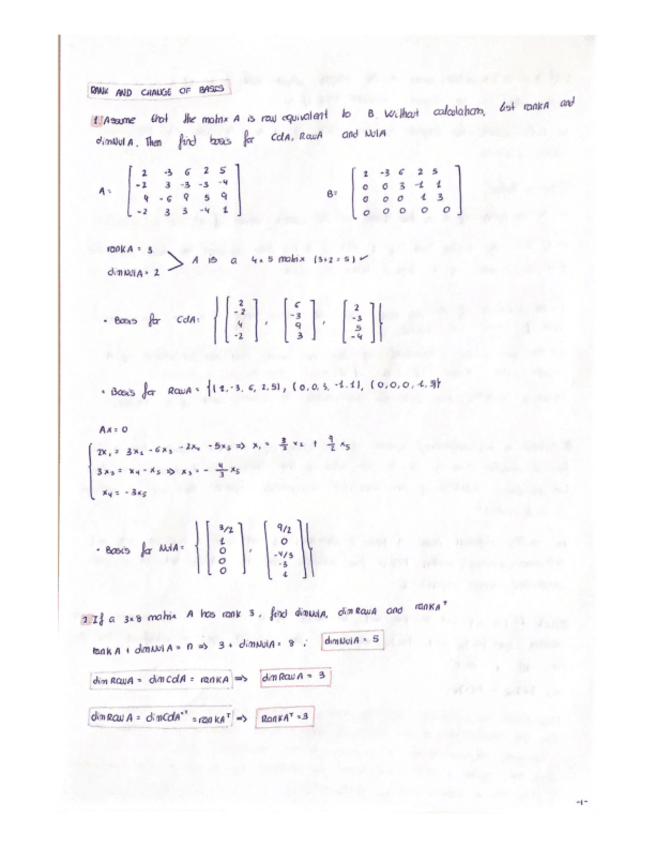 RANK AND CHANGE OF BASES
1. Assume that the matrix A is row equivalent to B. Without calculations, list rankA and
dimNulA. Then find basis for ColA, RowA and NulA
A = [ 2 -3 6 2 5
-2 3 -3 -3 -4
4 -6 9 5 9
-2 3 3 -4 1 ]
B = [ 2 -3 6 2 5
0 0 3 -1 1
0 0 0 1 3
0 0 0 0 0 ]
rankA = 3
dimNulA = 2
A is a 4x5 matrix (3+2=5) ✓
• Basis for ColA: { [ 2 -2 4 -2 ], [ 6 -3 9 3 ], [ 2 -3 5 -4 ] }
• Basis for RowA = {(2,-3,6,2,5), (0,0,3,-1,1), (0,0,0,1,3)}
Ax = 0
2x₁ = 3x₂ - 6x₃ - 2x₄ - 5x₅ => x₁ = 3/2 x₂ + 9/2 x₅
3x₃ = x₄ - x₅ => x₃ = - 4/3 x₅
x₄ = - 3x₅
• Basis for NulA = { [ 3/2 1 0 0 0 ], [ 9/2 0 -4/3 -3 1 ] }
2. If a 3x8 matrix A has rank 3, find dimNulA, dimRowA and rankAᵀ
rankA + dimNulA = n => 3 + dimNulA = 8 ; dimNulA = 5
dimRowA = dimColA = rankA => dimRowA = 3
dimRowA = dimColAᵀ = rankAᵀ => RankAᵀ = 3
-1-